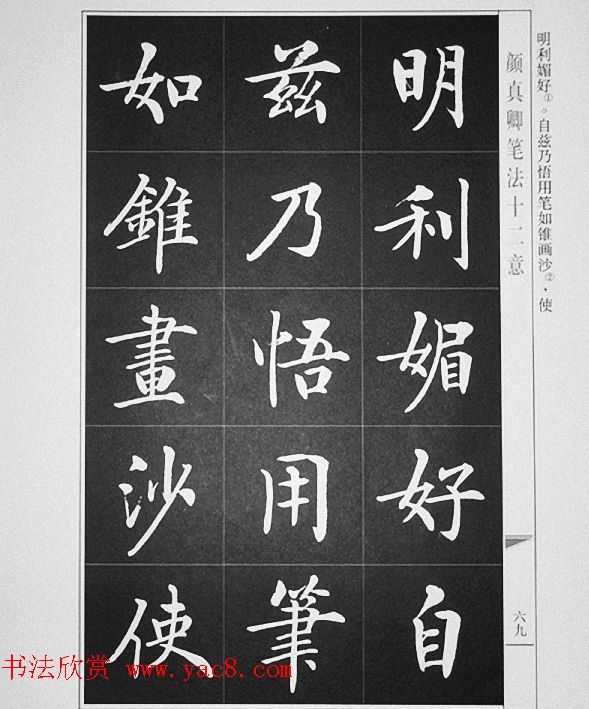 明利媚好①。自兹乃悟用笔如锥画沙②，使
颜真卿笔法十二意
六九
明利媚好自
兹乃悟用筆
如錐畫沙使
书法欣赏 www.yac8.com